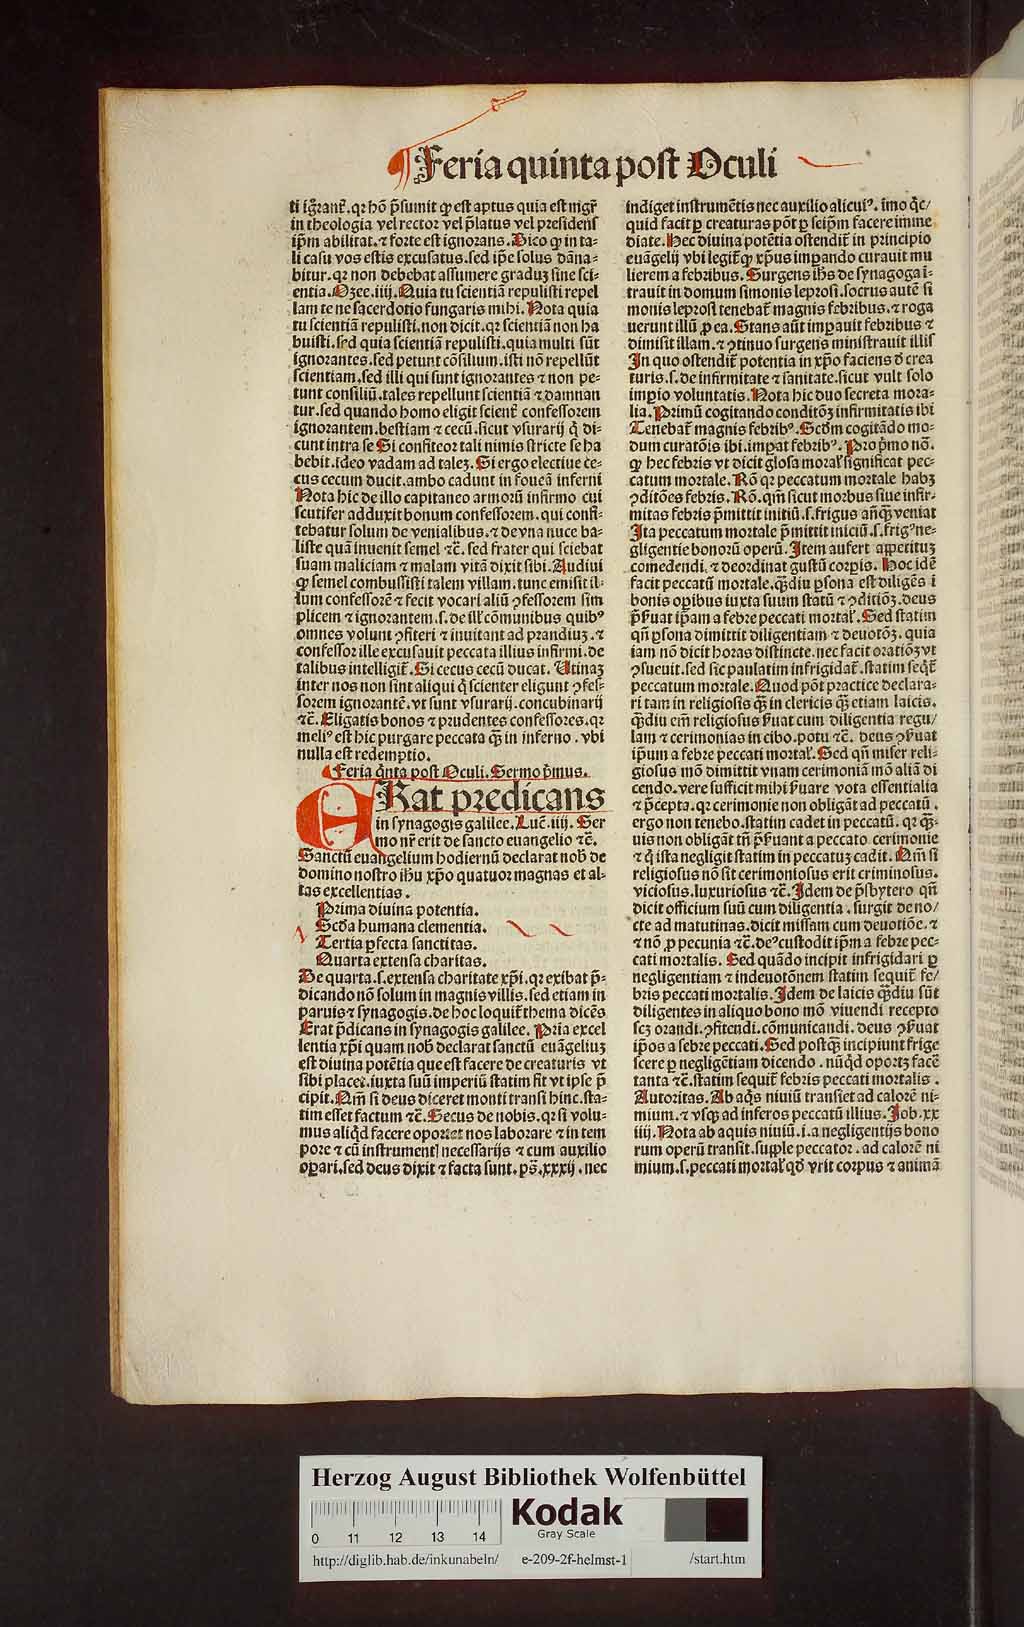 Feria quinta post Oculi
ti ignorant̃. qr hõ p̃sumit ꝙ est aptus quia est mgr̃
in theologia vel rector vel p̃latus vel presidens
ip̃m abilitat. ⁊ forte est ignorans. Dico ꝙ in ta-
li casu vos estis excusatus. sed ip̃e solus dãna-
bitur. qr non debebat assumere graduꝫ sine sci-
entia. Ozee. iiij. Quia tu scientiã repulisti repel
lam te ne sacerdotio fungaris mihi. Nota quia
tu scientiã repulisti. non dicit. qr scientiã non ha
buisti. sed quia scientiã repulisti. quia multi sũt
ignorantes. sed petunt cõsilium. isti nõ repellũt
scientiam. sed illi qui sunt ignorantes ⁊ non pe-
tunt consiliũ. tales repellunt scientiã ⁊ damnan
tur. sed quando homo eligit scienter̃ confessorem
ignorantem. bestiam ⁊ cecũ. sicut vsurarij q̃ di-
cunt intra se Si confiteor tali nimis stricte se ha
bebit. Ideo vadam ad taleꝫ. Si ergo electiue ce-
cus cecum ducit. ambo cadunt in foueã inferni
Nota hic de illo capitaneo armorũ infirmo cui
scutifer adduxit bonum confessorem. qui confi-
tebatur solum de venialibus. ⁊ de vna nuce ba-
liste quã inuenit semel ⁊c̃. sed frater qui sciebat
suam maliciam ⁊ malam vitã dixit sibi. Audiui
ꝙ semel combussisti talem villam. tunc emisit il-
lum confessorẽ ⁊ fecit vocari aliũ ꝯfessorem sim
plicem ⁊ ignorantem. s. de ill̃ cõmunibus quibꝰ
omnes volunt ꝯfiteri ⁊ inuitant ad prandiuꝫ. ⁊
confessor ille excusauit peccata illius infirmi. de
talibus intelligit̃. Si cecus cecũ ducat. Utinaꝫ
inter nos non sint aliqui q̃ scienter eligunt ꝯfes-
sorem ignorantẽ. vt sunt vsurarij. concubinarij
⁊c̃. Eligatis bonos ⁊ prudentes confessores. qr
meliꝰ est hic purgare peccata q̃ꝫ in inferno. vbi
nulla est redemptio.
Feria q̃nta post Oculi. Sermo p̃mus.
ERat predicans
in synagogis galilee. Luc̃. iiij. Ser
mo nr̃ erit de sancto euangelio ⁊c̃.
Sanctũ euangelium hodiernũ declarat nob̃ de
domino nostro ih̃u xp̃o quatuor magnas et al-
tas excellentias.
Prima diuina potentia.
Scd̃a humana clementia.
Tertia ꝑfecta sanctitas.
Quarta extensa charitas.
De quarta. s. extensa charitate xp̃i. qr exibat p̃-
dicando nõ solum in magnis villis. sed etiam in
paruis ⁊ synagogis. de hoc loquit̃ thema dicẽs
Erat p̃dicans in synagogis galilee. Pria excel
lentia xp̃i quam nob̃ declarat sanctũ euãgeliuꝫ
est diuina potẽtia que est facere de creaturis vt
sibi placet. iuxta suũ imperiũ statim fit vt ipse p̃
cipit. Nam̃ si deus diceret monti transi hinc. sta-
tim esset factum ⁊c̃. Secus de nobis. qr si volu-
mus aliq̃d facere oportet nos laborare ⁊ in tem
pore ⁊ cũ instrumentꝭ necessarijs ⁊ cum auxilio
oꝑari. sed deus dixit ⁊ facta sunt. ps̃. xxxij. nec
indiget instrumẽtis nec auxilio alicuiꝰ. imo q̃c/
quid facit ꝑ creaturas põt ꝑ seip̃m facere imme
diate. Hec diuina potẽtia ostendit̃ in principio
euãgelij vbi legit̃ ꝙ xp̃us imꝑando curauit mu
lierem a febribus. Surgens ih̃s de synagoga ĩ-
trauit in domum simonis leprosi. socrus autẽ si
monis leprosi tenebat̃ magnis febribus. ⁊ roga
uerunt illũ ꝓ ea. Stans aũt imꝑauit febribus ⁊
dimisit illam. ⁊ ꝯtinuo surgens ministrauit illis
In quo ostendit̃ potentia in xp̃o faciens d̃ crea
turis. s. de infirmitate ⁊ sanitate. sicut vult solo
imꝑio voluntatis. Nota hic duo secreta mora-
lia. Primũ cogitando conditõꝫ infirmitatis ibi
Tenebat̃ magnis febribꝰ. Scd̃m cogitãdo mo-
dum curatõis ibi. imꝑat febribꝰ. Pro p̃mo nõ.
ꝙ hec febris vt dicit glosa moral̃ significat pec-
catum mortale. Rõ qr peccatum mortale habꝫ
ꝯditões febris. Rõ. qm̃ sicut morbus siue infir-
mitas febris p̃mittit initiũ. s. frigus añq̃ꝫ veniat
Ita peccatum mortale p̃mittit iniciũ. s. frigꝰ ne-
gligentie bonorũ operũ. Item aufert apperituꝫ
comedendi. ⁊ deordinat gustũ corꝑis. Hoc idẽ
facit peccatũ mortale. q̃ꝫdiu ꝑsona est diligẽs ĩ
bonis oꝑibus iuxta suum statũ ⁊ ꝯditiõꝫ. deus
p̃ẜuat ip̃am a febre peccati mortal̃. Sed statim
qñ ꝑsona dimittit diligentiam ⁊ deuotõꝫ. quia
iam nõ dicit horas distincte. nec facit oratiõꝫ vt
ꝯsueuit. sed sic paulatim infrigidat̃. statim seq̃t̃
peccatum mortale. Quod põt practice declara-
ri tam in religiosis q̃ꝫ in clericis q̃ꝫ etiam laicis.
q̃ꝫdiu em̃ religiosus ẜuat cum diligentia regu/
lam ⁊ cerimonias in cibo. potu ⁊c̃. deus ꝯẜuat
ip̃um a febre peccati mortal̃. Sed qñ miser reli-
giosus mõ dimittit vnam cerimoniã mõ aliã di
cendo. vere sufficit mihi ẜuare vota essentialia
⁊ p̃cepta. qr cerimonie non obligãt ad peccatũ.
ergo non tenebo. statim cadet in peccatũ. qr q̃ꝫ-
uis non obligãt tñ p̃ẜuant a peccato cerimonie
⁊ q̃ ista negligit statim in peccatuꝫ cadit. Nam̃ si
religiosus nõ sit cerimoniosus erit criminosus.
viciosus. luxuriosus ⁊c̃. Idem de p̃sbytero qñ
dicit officium suũ cum diligentia. surgit de no/
cte ad matutinas. dicit missam cum deuotiõe. ⁊
⁊ nõ ꝓ pecunia ⁊c̃. deꝰ custodit ip̃m a febre pec-
cati mortalis. Sed quãdo incipit infrigidari ꝑ
negligentiam ⁊ indeuotõnem statim sequit̃ fe/
bris peccati mortalis. Idem de laicis q̃ꝫdiu sũt
diligentes in aliquo bono mõ viuendi recepto
scꝫ orandi. ꝯfitendi. cõmunicandi. deus ꝯẜuat
ip̃os a febre peccati. Sed postq̃ꝫ incipiunt frige
scere ꝑ negligẽtiam dicendo. nũq̃d oportꝫ facẽ
tanta ⁊c̃. statim sequit̃ febris peccati mortalis.
Autoritas. Ab aq̃s niuiũ transiet ad calorẽ ni-
mium. ⁊ vsqꝫ ad inferos peccatũ illius. Job. xx
iiij. Nota ab aquis niuiũ. i. a negligentijs bono
rum operũ transit. supple peccator. ad calorẽ ni
mium. s. peccati mortal̃ qd̃ vrit corpus ⁊ animã
Herzog August Bibliothek Wolfenbüttel
0 11 12 13 14
Kodak
Gray Scale
http://diglib.hab.de/inkunabeln/ e-209-2f-helmst-1 /start.htm